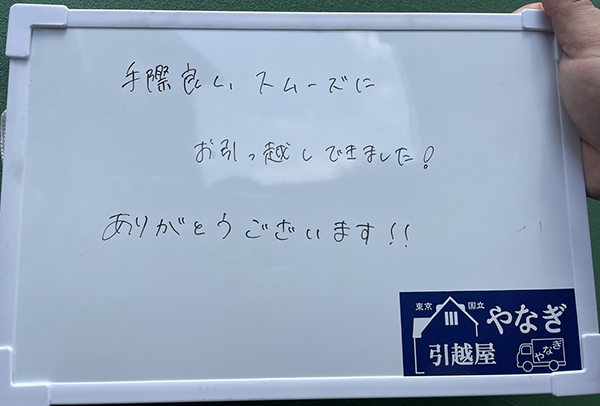 手際良く、スムーズに
お引っ越しできました!
ありがとうございます!!
東京 国立 やなぎ
引越屋 やなぎ